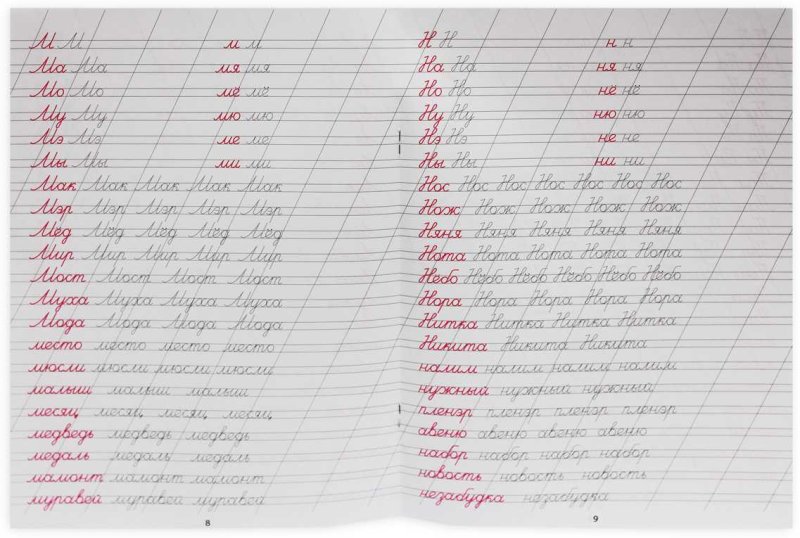 М М м м
Ма Ма мя мя
Мо Мо мё мё
Му Му мю мю
Мэ Мэ ме ме
Мы Мы ми ми
Мак Мак Мак Мак Мак
Мэр Мэр Мэр Мэр Мэр
Мёд Мёд Мёд Мёд Мёд
Мир Мир Мир Мир Мир
Мост Мост Мост Мост
Муха Муха Муха Муха
Мода Мода Мода Мода
место место место место
мюсли мюсли мюсли мюсли
малыш малыш малыш
месяц месяц месяц месяц
медведь медведь медведь
медаль медаль медаль
мамонт мамонт мамонт
муравей муравей муравей
8
Н Н н н
На На ня ня
Но Но нё нё
Ну Ну ню ню
Нэ Нэ не не
Ны Ны ни ни
Нос Нос Нос Нос Нос Нос Нос
Нож Нож Нож Нож Нож
Няня Няня Няня Няня Няня
Нота Нота Нота Нота Нота
Небо Небо Небо Небо Небо Небо
Нора Нора Нора Нора Нора
Нитка Нитка Нитка Нитка
Никита Никита Никита
налим налим налим налим
нужный нужный нужный
пленэр пленэр пленэр пленэр
авеню авеню авеню авеню
набор набор набор набор
новость новость новость
незабудка незабудка
9